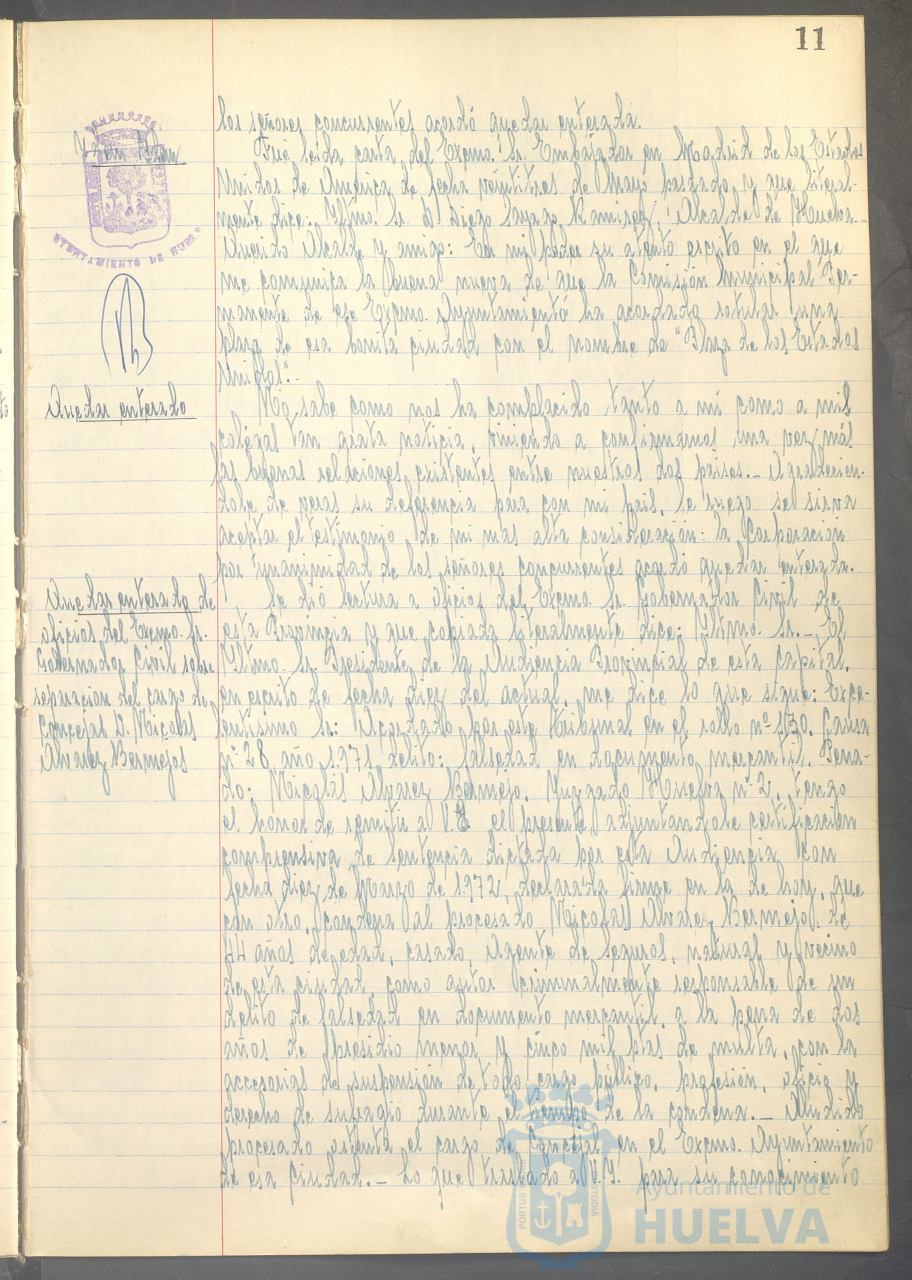 11
los señores concurrentes acordó quedar enterada.
Fué leida carta del Excmo. Sr. Embajador en Madrid de los Estados
Unidos de América de fecha veintitres de Mayo pasado y que literal-
mente dice: Iltmo. Sr. D. Diego Sayago Ramirez. Alcalde de Huelva.-
Querido Alcalde y amigo: En mi poder su atento escrito en el que
me comunica la buena nueva de que la Comisión Municipal Per-
manente de ese Excmo. Ayuntamiento ha acordado rotular una
plaza de esa bonita ciudad con el nombre de "Plaza de los Estados
Unidos".-
Quedar enterado
No sabe como nos ha complacido tanto a mi como a mis
colegas tan grata noticia, viniendo a confirmarnos una vez más
las buenas relaciones existentes entre nuestros dos paises.- Agradecien-
dole de veras su deferencia para con mi pais, le ruego se sirva
aceptar el testimonio de mi más alta consideración: la Corporación
por unanimidad de los señores concurrentes acordó quedar enterada.
Quedar enterado de
oficios del Excmo. Sr.
Gobernador Civil sobre
separacion del cargo de
Concejal D. Nicolas
Alvarez Bermejos
Se dió lectura a oficios del Excmo. Sr. Gobernador Civil de
esta Provincia y que copiada literalmente dice: Iltmo. Sr.- El
Iltmo. Sr. Presidente de la Audiencia Provincial de esta capital,
en escrito de fecha diez del actual, me dice lo que sigue: Exce-
lentisimo Sr: Acordado por este Tribunal en el rollo nº 130. Causa
nº 28 año 1971 delito: falsedad en documento mercantil. Pena-
do: Nicolás Alvarez Bermejo. Juzgado Huelva nº 2, tengo
el honor de remitir a V.E. el presente, adjuntandole certificación
comprensiva de sentencia dictada por esta Audiencia con
fecha diez de Marzo de 1972, declarada firme en la de hoy, que
con otro, condena al procesado Nicolas Alvarez Bermejo, de
44 años de edad, casado, Agente de Seguros, natural y vecino
de esta ciudad como autor criminalmente responsable de un
delito de falsedad en documento mercantil, a la pena de dos
años de presidio menor y cinco mil ptas de multa, con la
accesorias de suspensión de todo cargo público, profesión, oficio y
derecho de sufragio durante el tiempo de la condena.- Aludido
procesado ostenta el cargo de Concejal en el Excmo. Ayuntamiento
de esa Ciudad.- Lo que traslado a V.I. para su conocimiento
AYUNTAMIENTO DE HUELVA
PORTUS
CUSTODIA
Ayuntamiento de
HUELVA